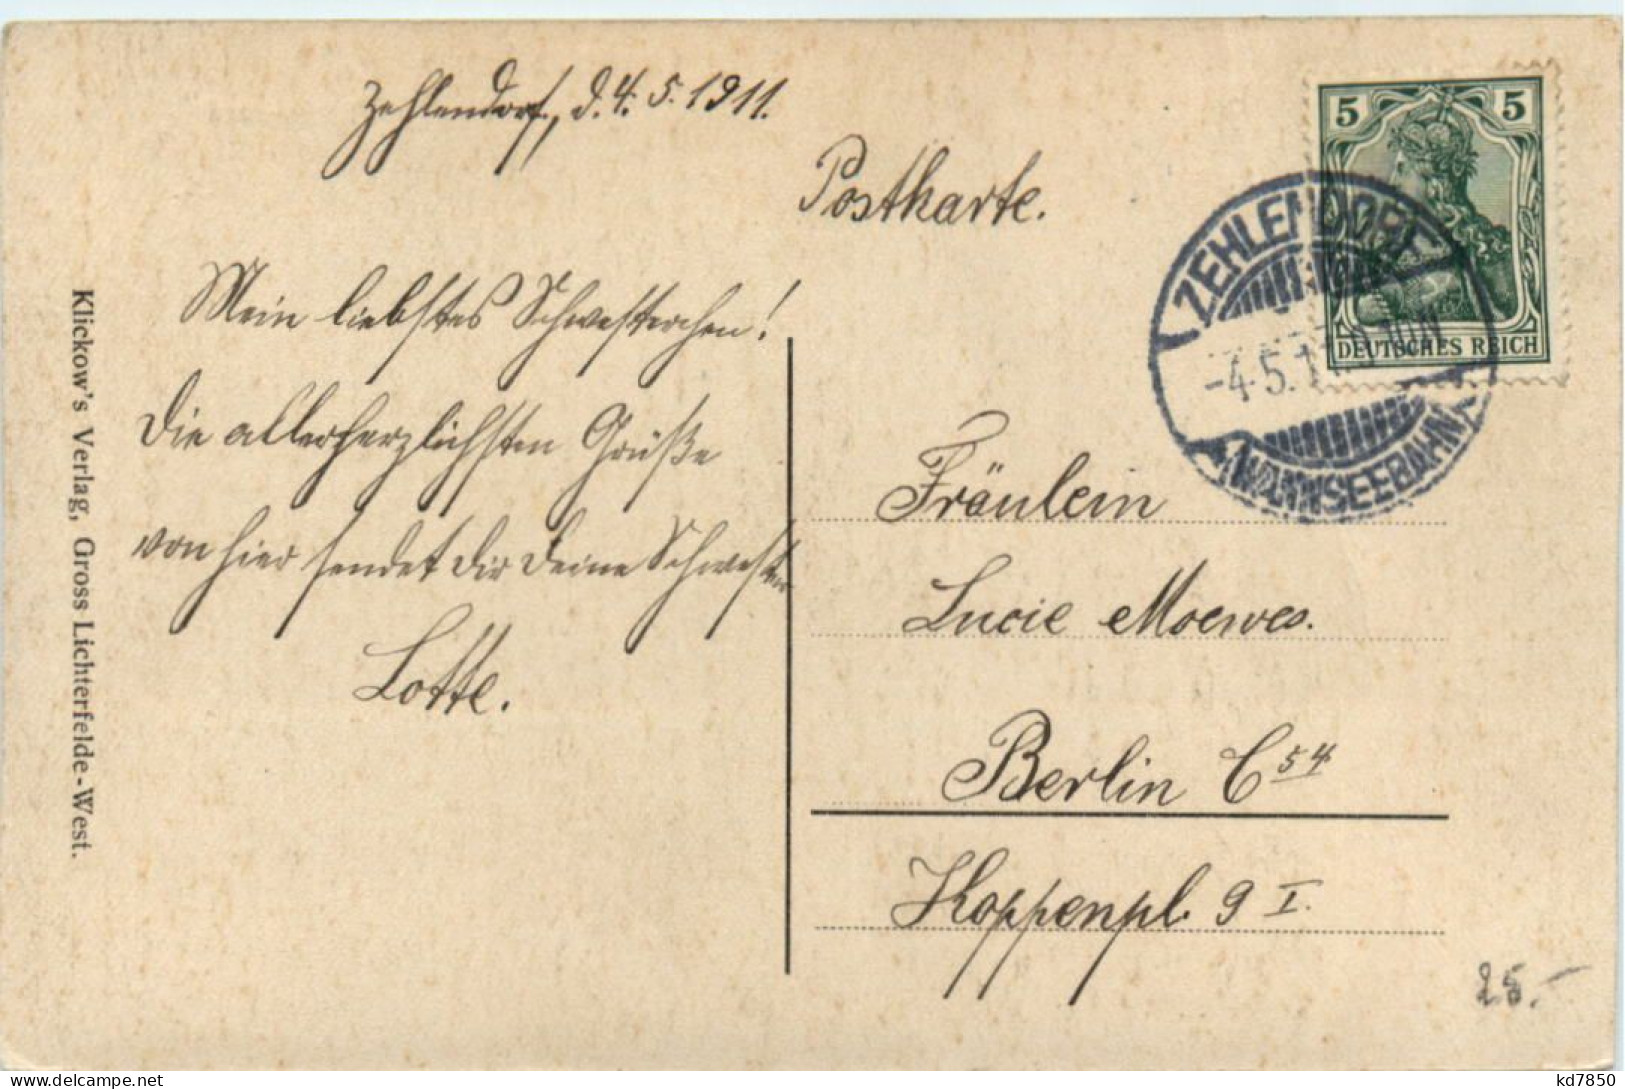 Zehlendorf, d. 4. 5. 1911.
Postkarte.
Mein liebstes Schwesterchen!
Die allerherzlichsten Grüße
von hier sendet Dir Deine Schwester
Lotte.
Fräulein
Lucie Moewes.
Berlin C 54
Koppenpl. 9 I.
5 5
DEUTSCHES REICH
ZEHLENDORF
-4.5.11
(WANNSEEBAHN)
Klickow's Verlag, Gross Lichterfelde-West.
25.-
kd7850